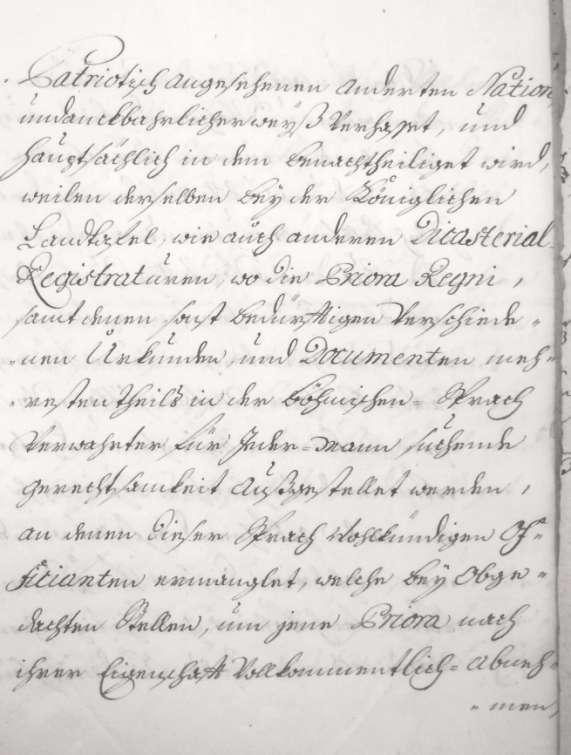 Patriotisch angesehenen anderten Nation,
undanckbahrlicher weyß verhasset, und
hauptsächlich in dem benachtheiliget wird,
weilen derselben bey der Königlichen
Landtafel, wie auch anderen Dicasterial-
Registraturen, wo die Priora Regni,
samt denen sonst bedürfftigen verschiede-
-nen Urkunden, und Documenten meh-
-resten theils in der böhmischen Sprach
verwahrter für Jeder-Mann suchende
gerechtsamkeit außgestellet werden,
an denen dieser Sprach Vollkündigen Of-
ficianten ermanglet, welche bey obge-
dachten Stellen, um jene Priora nach
ihrer Eigenschafft Vollkommentlich-abneh-
-men,